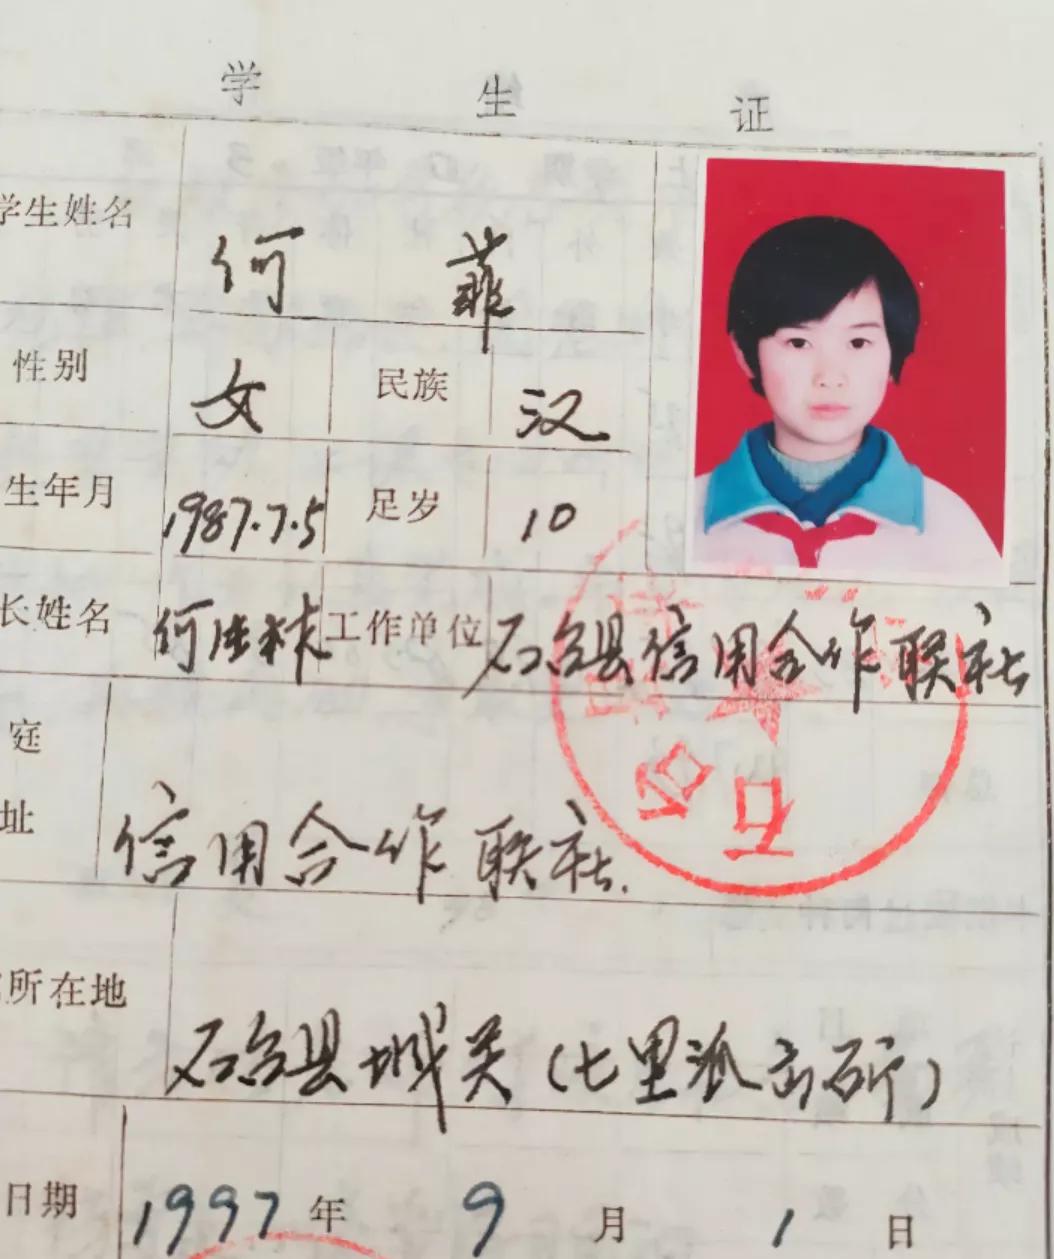 学生证
学生姓名 何菲
性别 女 民族 汉
生年月 1987.7.5 足岁 10
长姓名 何 林 工作单位 石台县信用合作联社
庭
址 信用合作联社.
所在地 石台县城关(七里派出所)
日期 1997年9月1日
石台